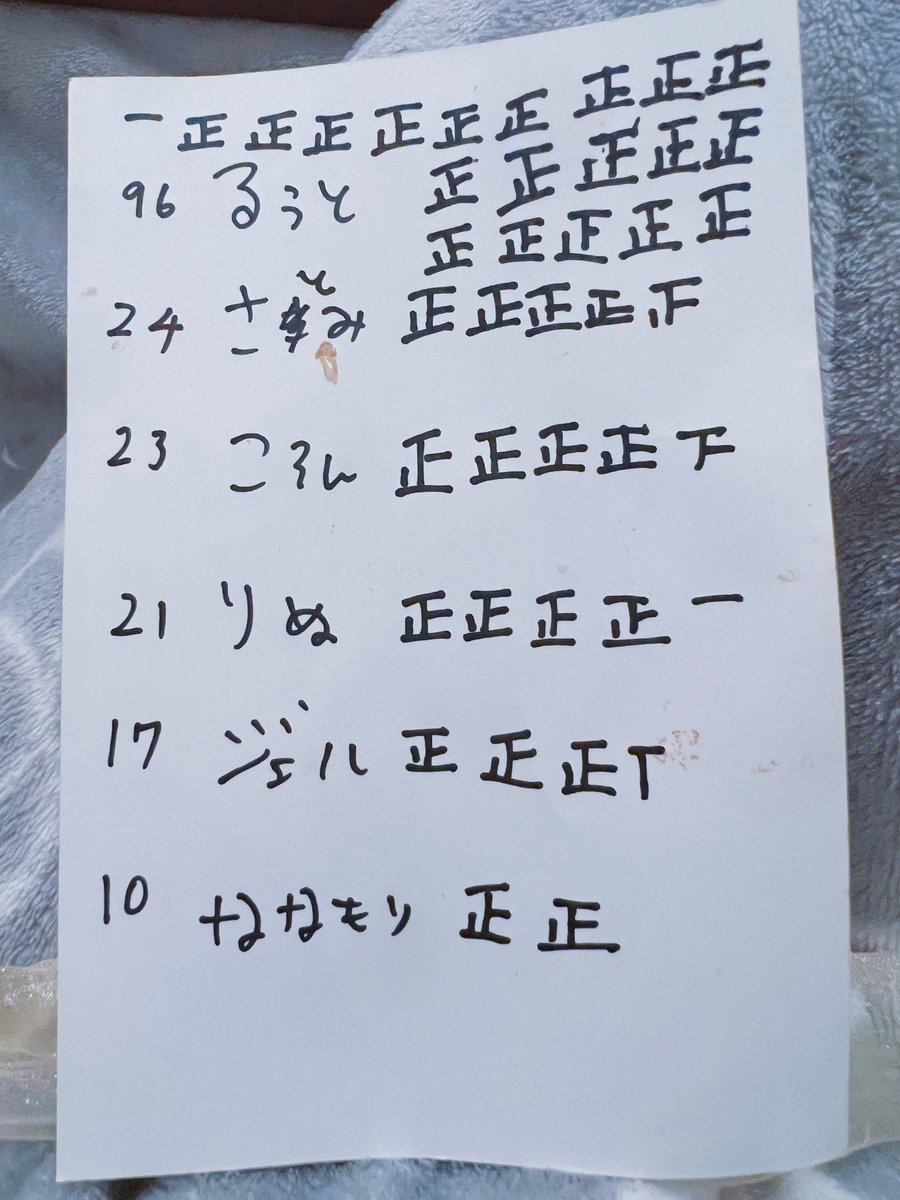 一 正 正 正 正 正 正 正 正 正
96 るぅと 正 正 正 正 正
正 正 正 正 正
24 さとみ 正 正 正 正 下
23 ころん 正 正 正 正 下
21 りぬ 正 正 正 正 一
17 ジェル 正 正 正 T
10 ななもり 正 正